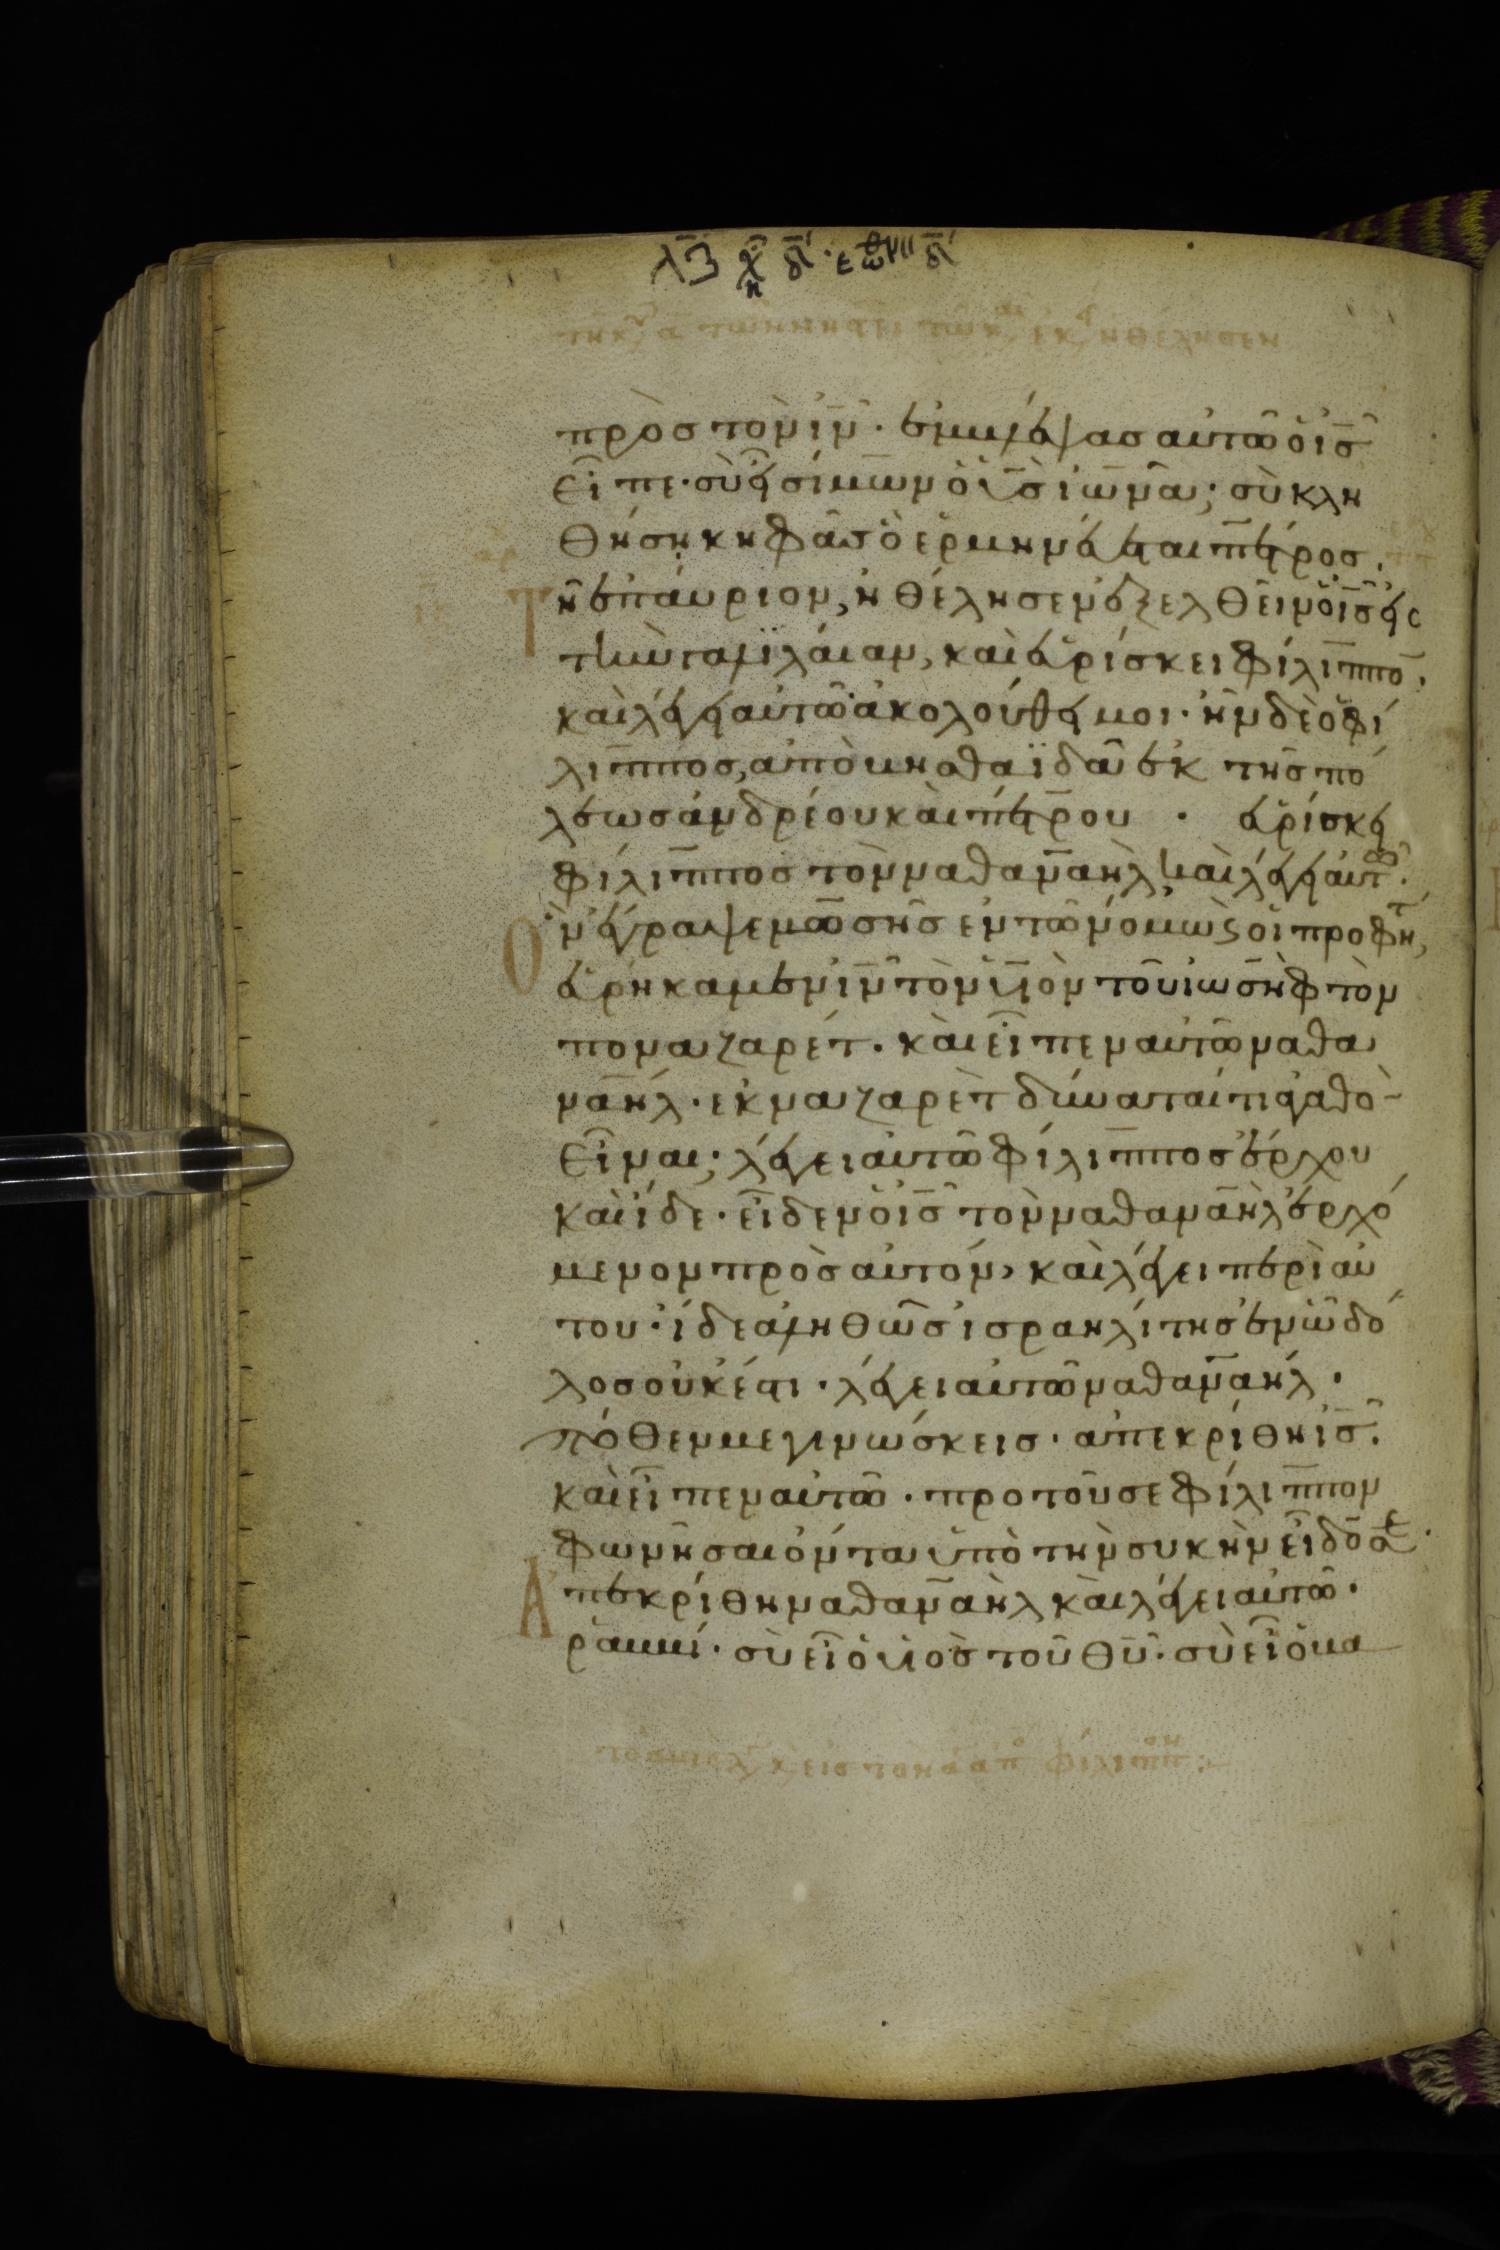 πρὸς τὸν ιν̅· ἐμβλέψας αὐτῶ ὁ ις̅
εἶπε· σὺ εἶ σίμων ὁ υἱὸς ἰωνᾶ; σὺ κλη
θήση κηφᾶς ὃ ἑρμηνεύεται πέτρος.
Τῆ ἐπάυριον, ἠθέλησεν ἐξελθεῖν ὁ ις̅ εἰς
τὴν γαλιλαίαν, καὶ εὑρίσκει φίλιππο̅.
καὶ λέγει αὐτῶ ἀκολούθει μοι· ἦν δὲ ὁ φί
λιππος, ἀπὸ βηθσαϊδᾶ ἐκ τῆς πό
λεως ἀνδρέου καὶ πέτρου · εὑρίσκει
φίλιππος τὸν ναθαναὴλ καὶ λέγει αὐτῶ·
Ὃν ἔγραψε μωσῆς ἐν τῶ νόμω ϗ οἱ προφῆτ,
εὑρήκαμεν ιν̅ τὸν υἱὸν τοῦ ἰωσὴφ τὸν
ἀπὸ ναζαρέτ· καὶ εἶπεν αὐτῶ ναθα
ναήλ· ἐκ ναζαρὲτ δύναταί τι ἀγαθὸ̅
εἶναι; λέγει αὐτῶ φίλιππος ἔρχου
καὶ ἴδε· εἶδεν ὁ ις̅ τὸν ναθαναὴλ ἐρχό
μενον πρὸς αὐτόν, καὶ λέγει περὶ αὐ
του· ἴδε ἀληθῶς ἰσραηλίτης ἐν ὧ δό
λος οὐκ ἔστι· λέγει αὐτῶ ναθαναήλ·
πόθεν με γινώσκεις· ἀπεκρίθη ις̅.
καὶ εἶπεν αὐτῶ· προ τοῦ σε φίλιππον
φωνῆσαι ὄντα ὑπὸ τὴν συκὴν εἶδόν σε·
Ἀπεκρίθη ναθαναὴλ καὶ λέγει αὐτῶ·
ῥαββί· σὺ εἶ ὁ υἱὸς τοῦ θυ̅· σὺ εἶ ὁ βα